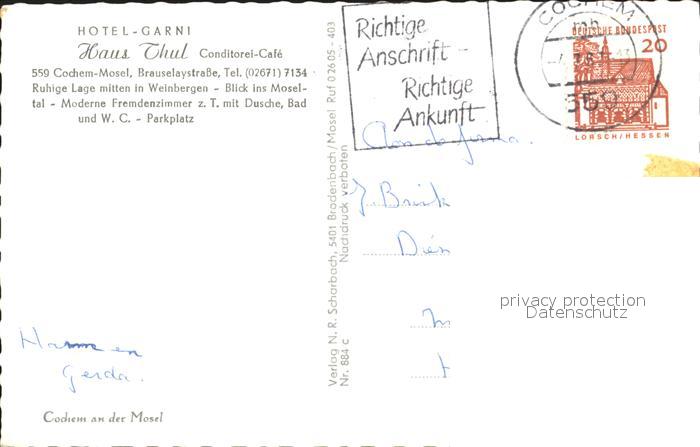 HOTEL-GARNI
Haus Thul Conditorei-Café
559 Cochem-Mosel, Brauselaystraße, Tel. (02671) 7134
Ruhige Lage mitten in Weinbergen - Blick ins Mosel-
tal - Moderne Fremdenzimmer z. T. mit Dusche, Bad
und W. C. - Parkplatz
Verlag N. R. Scharbach, 5401 Brodenbach/Mosel Ruf 02605-403
Nr. 884 c Nachdruck verboten
Richtige
Anschrift -
Richtige
Ankunft
COCHEM
DEUTSCHE BUNDESPOST
20
LORSCH/HESSEN
Aan de firma.
privacy protection
Datenschutz
en
Gerda.
Cochem an der Mosel